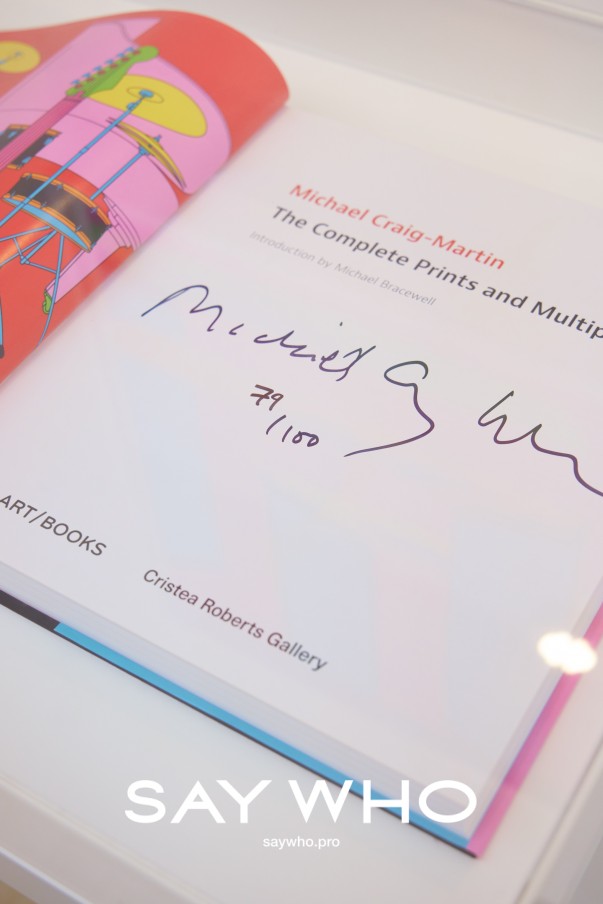 Michael Craig-Martin
The Complete Prints and Multip
Introduction by Michael Bracewell
Michael Cg
79
/100
ART/BOOKS
Cristea Roberts Gallery
SAY WHO
saywho.pro